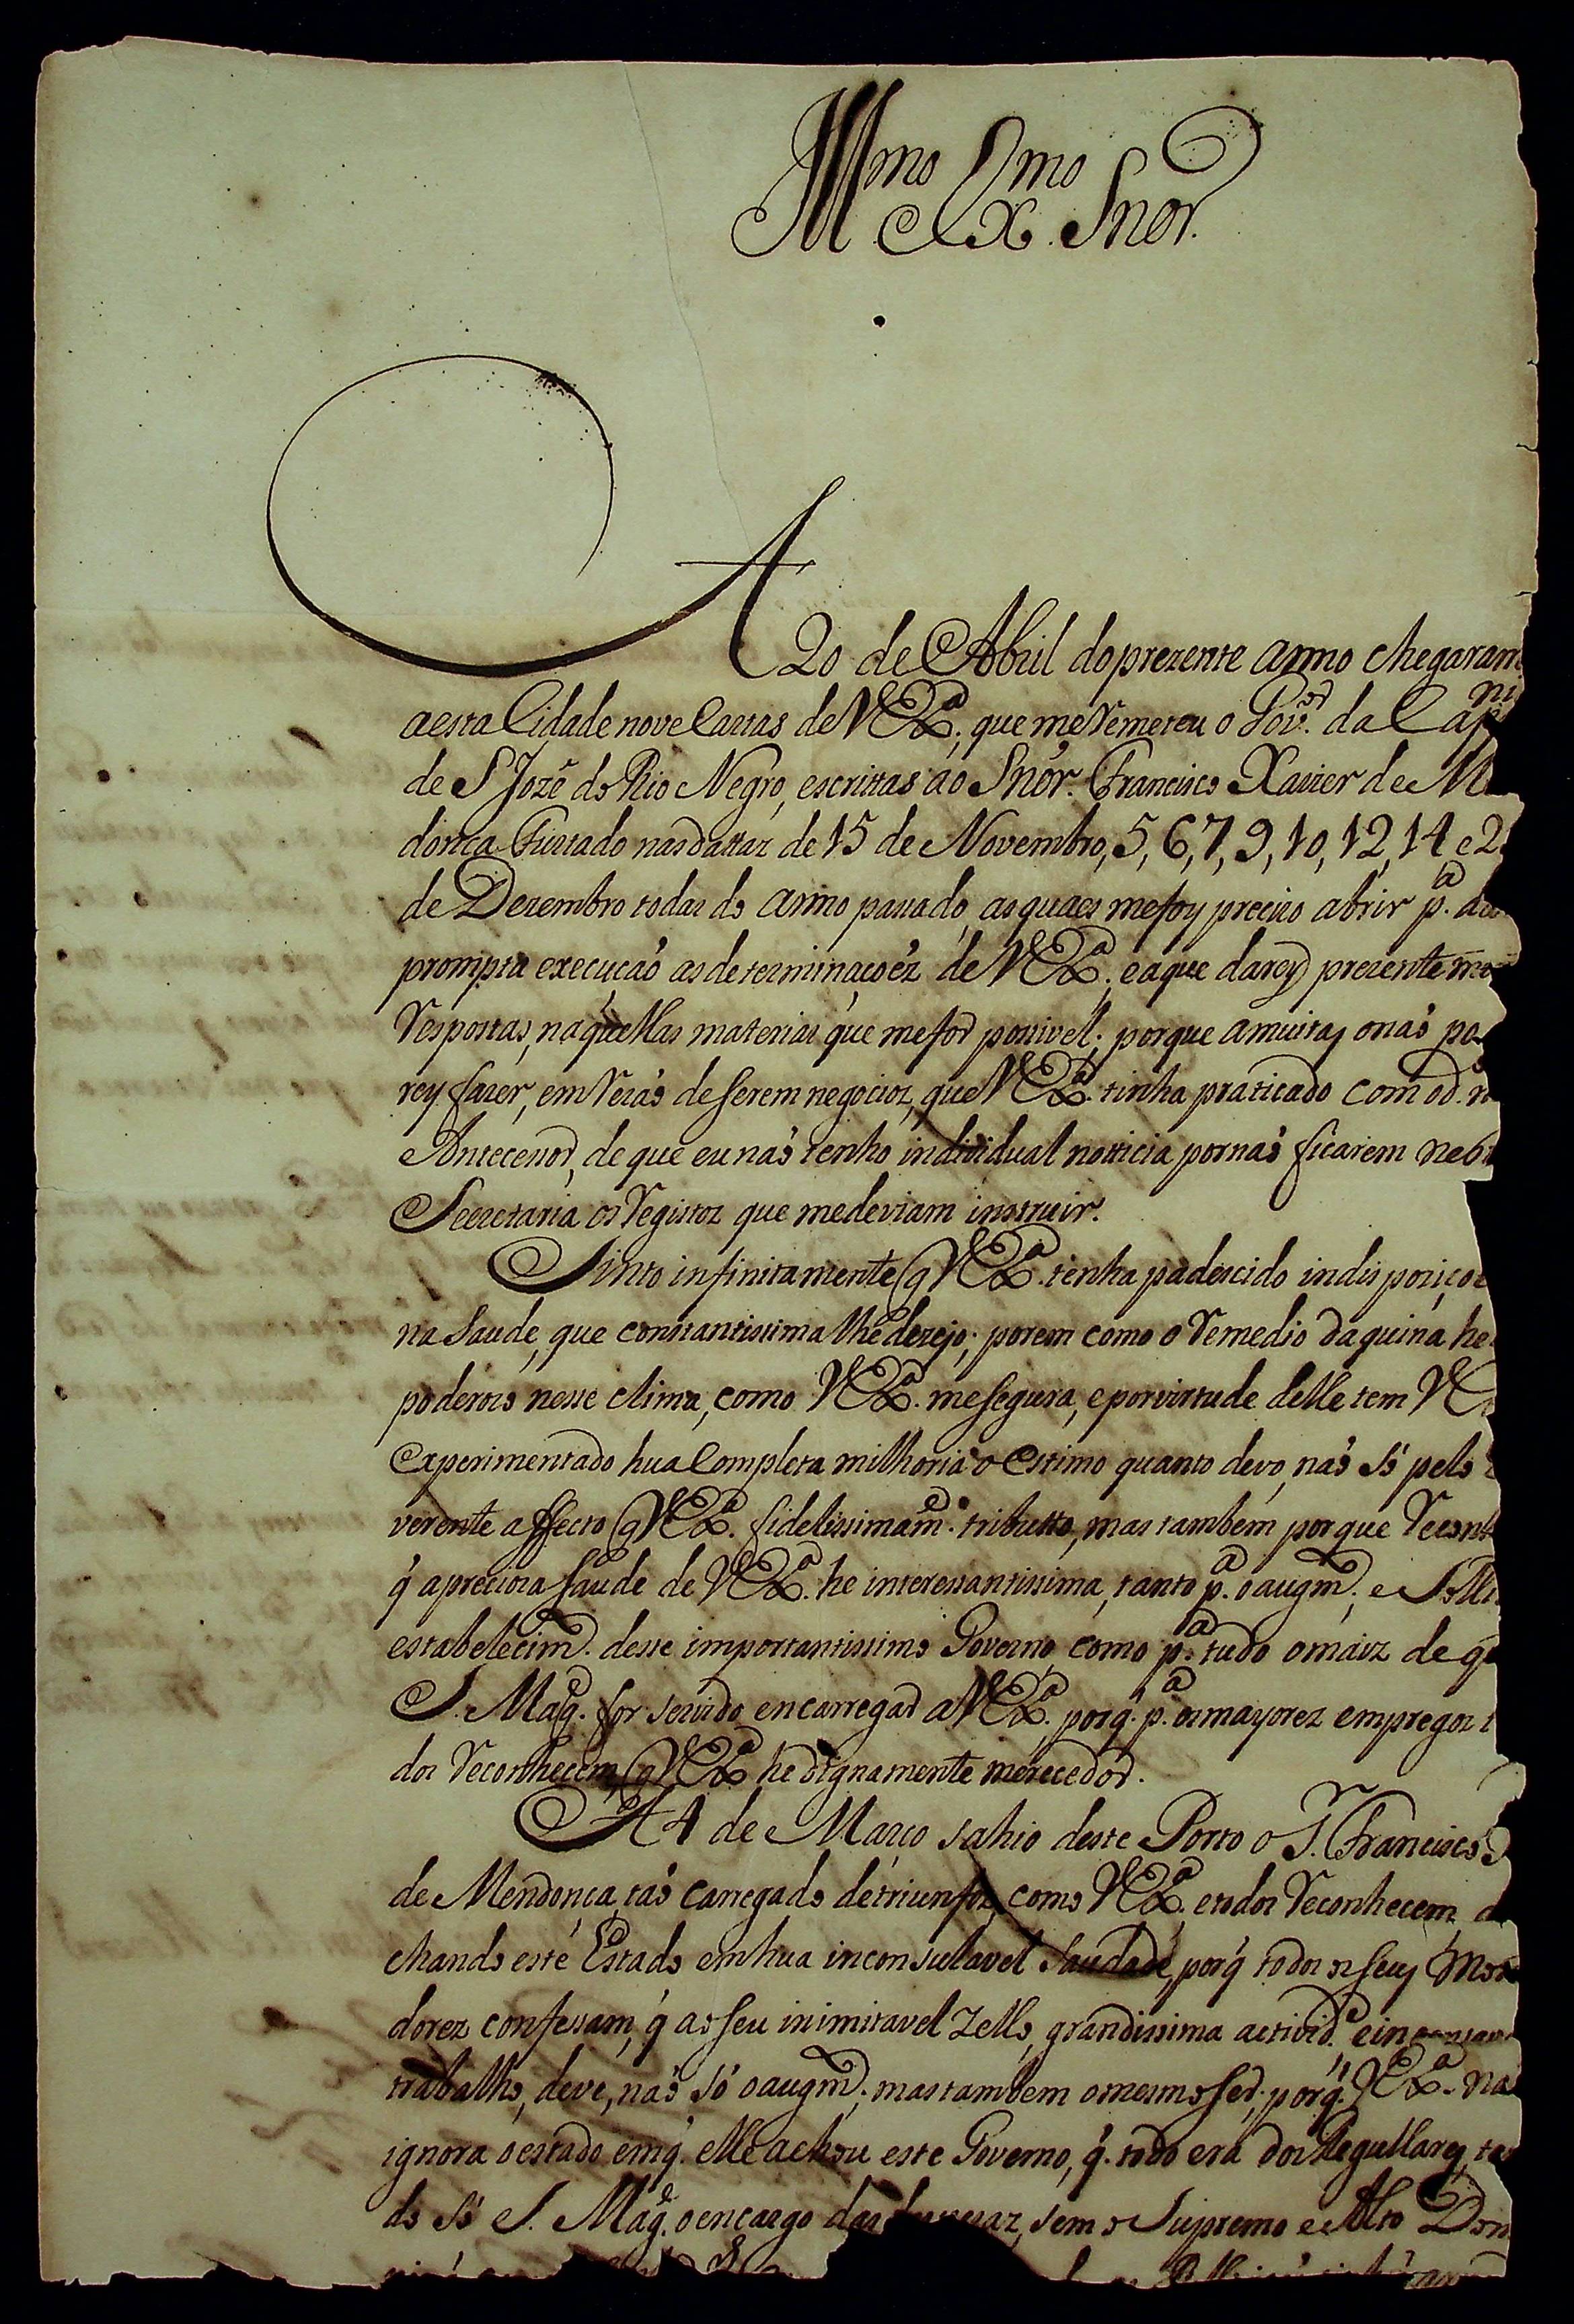 Illmo Exmo Snor.
A 20 de Abril do prezente anno chegaram
a esta Cidade nove Cartas de VExa., que me remeteu o Govor. da Capni
de S Jozê do Rio Negro, escrittas ao Snor. Francisco Xavier de M
donca Furtado nas dattaz de 15 de Novembro, 5, 6, 7, 9, 10, 12, 14 e 2
de Dezembro todas do anno passado, as quaes me foy precizo abrir pa.
prompta execucaõ as determinaçoéz de VExa.; e a que darey prezentemen
respostas, naquellas materias que me for possivel; porque a muitas o naõ po
rey fazer, em rezaõ de serem negocioz, que VExa. tinha praticado com o d.
Antecessor, de que eu naõ tenho individual notticia por naõ ficarem nes
Secretaria os registoz que me deviam instruir.
Sinto infinitamente q VExa. tenha padescido indispoziço
na saude, que constantissima lhe dezejo; porem como o remedio da quina he
poderozo nesse clima, como VExa. me segura, e por virtude delle tem V
experimentado hua completa milhoria o estimo quanto devo, naõ só pelo
verente affecto q VExa. fidelissimame. tributto, mas tambem por que recon
q a precioza saude de VExa. he interessantissima, tanto pa. o augmo., e
estabelecimo. desse importantissimo Governo, como pa. tudo o maiz de q
S. Magde. for servido encarregar a VExa. porq. pa. os mayorez empregoz
dos reconhecem, q VExa. he dignamente merecedor.
A 4 de Março sahio deste Porto o Sr. Francisco
de Mendonça, taõ carregado de triunfoz, como VExa. e todoz reconhecem
chando este Estado em hua inconsulavel saudade, porq todoz os seus Mor
dorez confessam, q ao seu inimitavel zello, grandissima activide. e incansav
trabalho, deve, naõ só o augmo., mas tambem o mesmo ser; porq. VExa. na
ignora o estado em q. elle achou este Governo, q. todo era doz Regullares,
do só S. Magde. o encargo das despezaz, sem o Supremo e Alto Dom